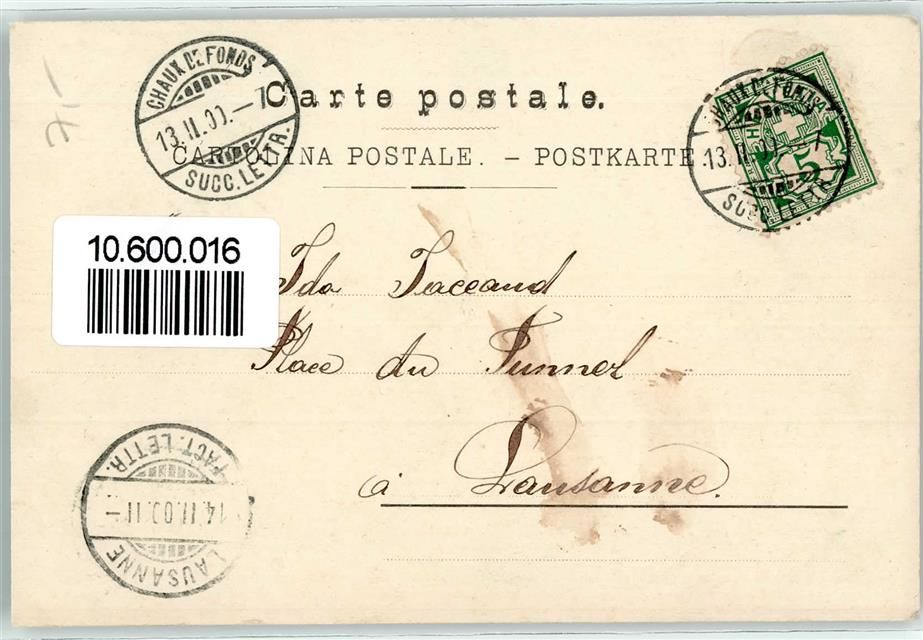 71-
CHAUX DE FONDS
13.II.00.-7
SUCC. LETTR.
Carte postale.
CARTOLINA POSTALE. - POSTKARTE.
CHAUX DE FONDS
13.II.00.-7
SUCC. LETTR.
5
10.600.016
Ida Jaccaud
Place du Tunnel
à Lausanne.
FACT. LETTR.
14.II.00.11-
LAUSANNE